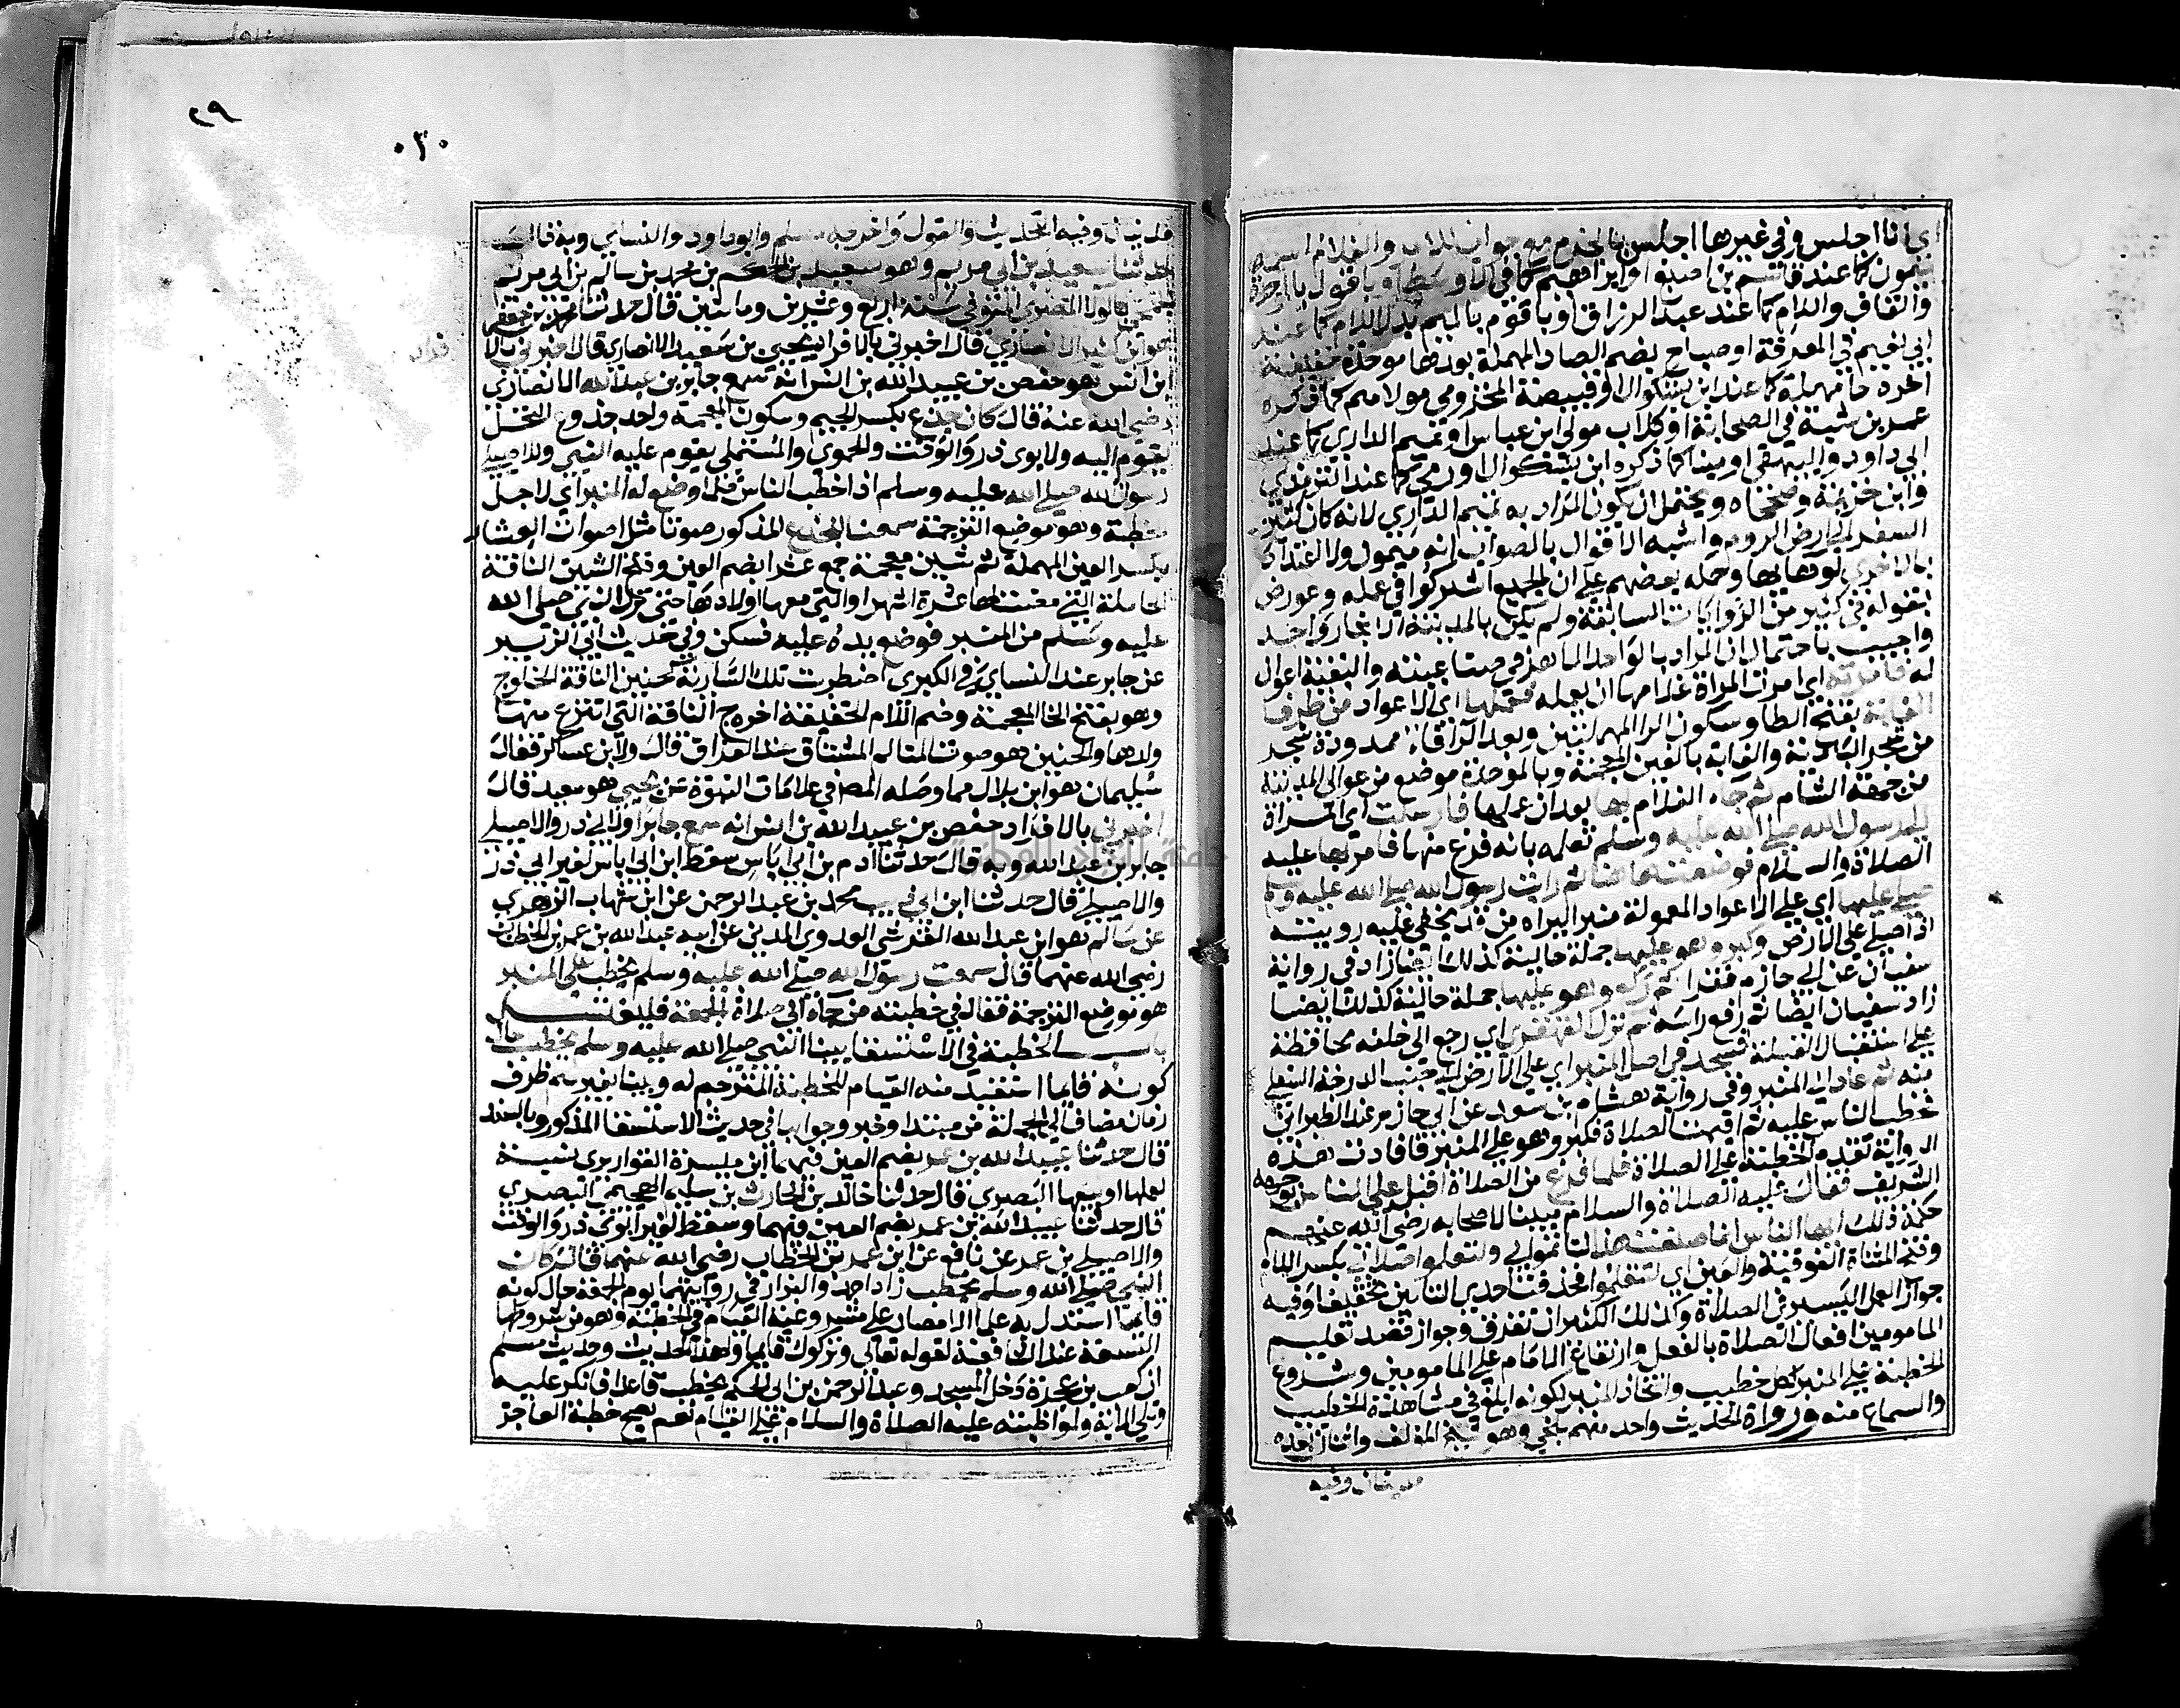 اي انا اجلس وفي غيرها اجلس بالجزم مع جواب للامر والغلام اسمه
ميمون كما عند قاسم بن اصبغ او ابراهيم كما في الاوسط او باقول بالموحدة
والقاف واللام كما عند عبد الرزاق او باقوم بالميم بدل اللام كما عند
ابي نعيم في المعرفة او صباح بضم الصاد المهملة بعدها موحدة خفيفة
اخره حا مهملة كما عند ابن بشكوال او قبيصة المخزومي مولاهم كما ذكره
عمر بن شبة في الصحابة او كلاب مولى ابن عباس او تميم الداري كما عند
ابي داود والبيهقي او مينا كما ذكره ابن بشكوال او رومي كما عند الترمذي
وابن خزيمة وصححاه ويحتمل ان يكون المراد به تميم الداري لانه كان كثير
السفر الى ارض الروم واشبه الاقوال بالصواب انه ميمون ولا اعتداد
بالاخرى لوهايها وحمله بعضهم على ان الجميع اشتركوا في عمله وعورض
بقوله في كثير من الروايات السابقة ولم يكن بالمدينة الا نجار واحد
واجيب باحتمال ان المراد بالواحد الماهر في صناعته والبقية اعوان
له فامرته اي امرت المراة غلامها ان يعمله فعملها اي الاعواد من طرفا
الغابة بفتح الطا وسكون الرا المهملتين وبعد الرا فاء ممدودة شجر
من شجر البادية والغابة بالغين المعجمة وبالموحدة موضع من عوالي المدينة
من جهة الشام ثم جاء الغلام بها بعد ان عملها فارسلت اي المراة
الى رسول الله صلى الله عليه وسلم تعلمه بانه فرغ منها فامر بها عليه
الصلاة والسلام فوضعت هاهنا ثم رايت رسول الله صلى الله عليه وسلم
صلى عليها اي على الاعواد المعمولة منبرا ليراه من قد يخفى عليه رويته
اذا صلى على الارض وكبر وهو عليها جملة حالية كذلك ايضا زاد في رواية
سفيان عن ابي حازم فقرا ثم ركع وهو عليها جملة حالية كذلك ايضا
زاد سفيان ايضا ثم رفع راسه ثم نزل القهقرى اي رجع الى خلفه محافظة
على استقبال القبلة فسجد في اصل المنبر اي على الارض الى جنب الدرجة السفلى
منه ثم عاد الى المنبر وفي رواية هشام بن سعد عن ابي حازم عند الطبراني
فخطب الناس عليه ثم اقيمت الصلاة فكبر وهو على المنبر فافادت هذه
الرواية تقدم الخطبة على الصلاة فلما فرغ من الصلاة اقبل على الناس بوجهه
الشريف فقال عليه الصلاة والسلام مبينا لاصحابه رضى الله عنهم
حكمة ذلك ايها الناس انما صنعت هذا لتاتموا بي ولتعلموا صلاتي بكسر اللام
وفتح المثناة الفوقية والعين اي لتتعلموا فحذفت احدى التايين تخفيفا وفيه
جواز العمل اليسير في الصلاة وكذلك الكثير ان تفرق وجواز قصد تعليم
المامومين افعال الصلاة بالفعل وارتفاع الامام على المامومين وشروع
الخطبة على المنبر لكل خطيب واتخاذ المنبر لكونه ابلغ في مشاهدة الخطيب
والسماع منه ورواة الحديث واحد منهم بلخي وهو شيخ المولف واثنان بعده
مدنيان وفيه
٢٩
٠٣٠
مدنيان وفيه التحديث والقول واخرجه مسلم وابو داود والنسائي وبه قال
حدثنا سعيد بن ابي مريم وهو سعيد بن الحكم بن محمد بن سالم بن ابي مريم
الجمحي بالولا المصري المتوفي سنة اربع وعشرين ومائتين قال حدثنا محمد بن جعفر
هو ابن كثير الانصاري قال اخبرني بالافراد يحيى بن سعيد الانصاري قال اخبرني بالا
فراد
ابن انس هو حفص بن عبيد الله بن انس انه سمع جابر بن عبد الله الانصاري
رضي الله عنه قال كان جذع بكسر الجيم وسكون المعجمة واحد جذوع النخل
يقوم اليه ولابوى ذر والوقت والحموي والمستملي يقوم عليه النبي وللاصيلي
رسول الله صلى الله عليه وسلم اذا خطب الناس فلما وضع له المنبر اي لاجل
خطبة وهو موضع الترجمة سمعنا للجذع المذكور صوتا مثل اصوات العشار
بكسر العين المهملة ثم شين معجمة جمع عشرا بضم العين وفتح الشين الناقة
الحاملة التي مضت لها عشرة اشهر او التي معها اولادها حتى نزل النبي صلى الله
عليه وسلم من المنبر فوضع يده عليه فسكن وفي حديث ابي الزبير
عن جابر عند النسائي في الكبرى اضطربت تلك السارية كحنين الناقة الخلوج
وهو بفتح الخا المعجمة وضم اللام الخفيفة اخره ج الناقة التي انتزع منها
ولدها والحنين هو صوت المتالم المشتاق عند الفراق قال ولابن عساكر فقال
سليمان هو ابن بلال مما وصله المص في علامات النبوة عن يحيى هو سعيد قال
اخبرني بالافراد حفص بن عبيد الله بن انس انه سمع جابرا ولابي ذر والاصيلي
جابر بن عبد الله وبه قال حدثنا ادم بن ابي اياس سقط ابن ابي اياس لغير ابي ذر
والاصيلي قال حدثنا ابن ابي ذيب محمد بن عبد الرحمن عن ابن شهاب الزهري
عن سالم هو ابن عبد الله القرشي العدوي المدني عن ابيه عبد الله بن عمر بن الخطاب
رضي الله عنهما قال سمعت رسول الله صلى الله عليه وسلم يخطب على المنبر
هو موضع الترجمة فقال في خطبته من جاء الى صلاة الجمعة فليغتسل
باب الخطبة في الاستسقا بينا النبي صلى الله عليه وسلم يخطب حال
كونه قايما استفيد منه القيام للخطبة المترجم له وبينا بغير ميم ظرف
زمان مضاف الى الجملة من مبتدا وخبر وجوابها في حديث الاستسقا المذكور وبالسند
قال حدثنا عبيد الله بن عمر بضم العين فيهما ابن ميسرة القواريري نسبة
لعملها او بيعها البصري قال حدثنا خالد بن الحارث بن سليم الهجيمي البصري
قال حدثنا عبيد الله بن عمر بضم العين فيهما وسقط لغير ابوى ذر والوقت
والاصيلي بن عمر عن نافع عن ابن عمر بن الخطاب رضي الله عنهما قال كان
النبي صلى الله وسلم يخطب زاد احمد والبزار في روايتهما يوم الجمعة حال كونه
قايما استدل به علما الامصار على مشروعية القيام في الخطبة وهو من شروطها
التسعة عند الشافعية لقوله تعالى وتركوك قايما ولهذا الحديث وحديث مسلم
ان كعب بن عجرة دخل المسجد وعبد الرحمن بن ابي الحكم يخطب قاعدا فانكر عليه
وتلى الاية ولمواظبته عليه الصلاة والسلام على القيام نعم تصح خطبة العاجز